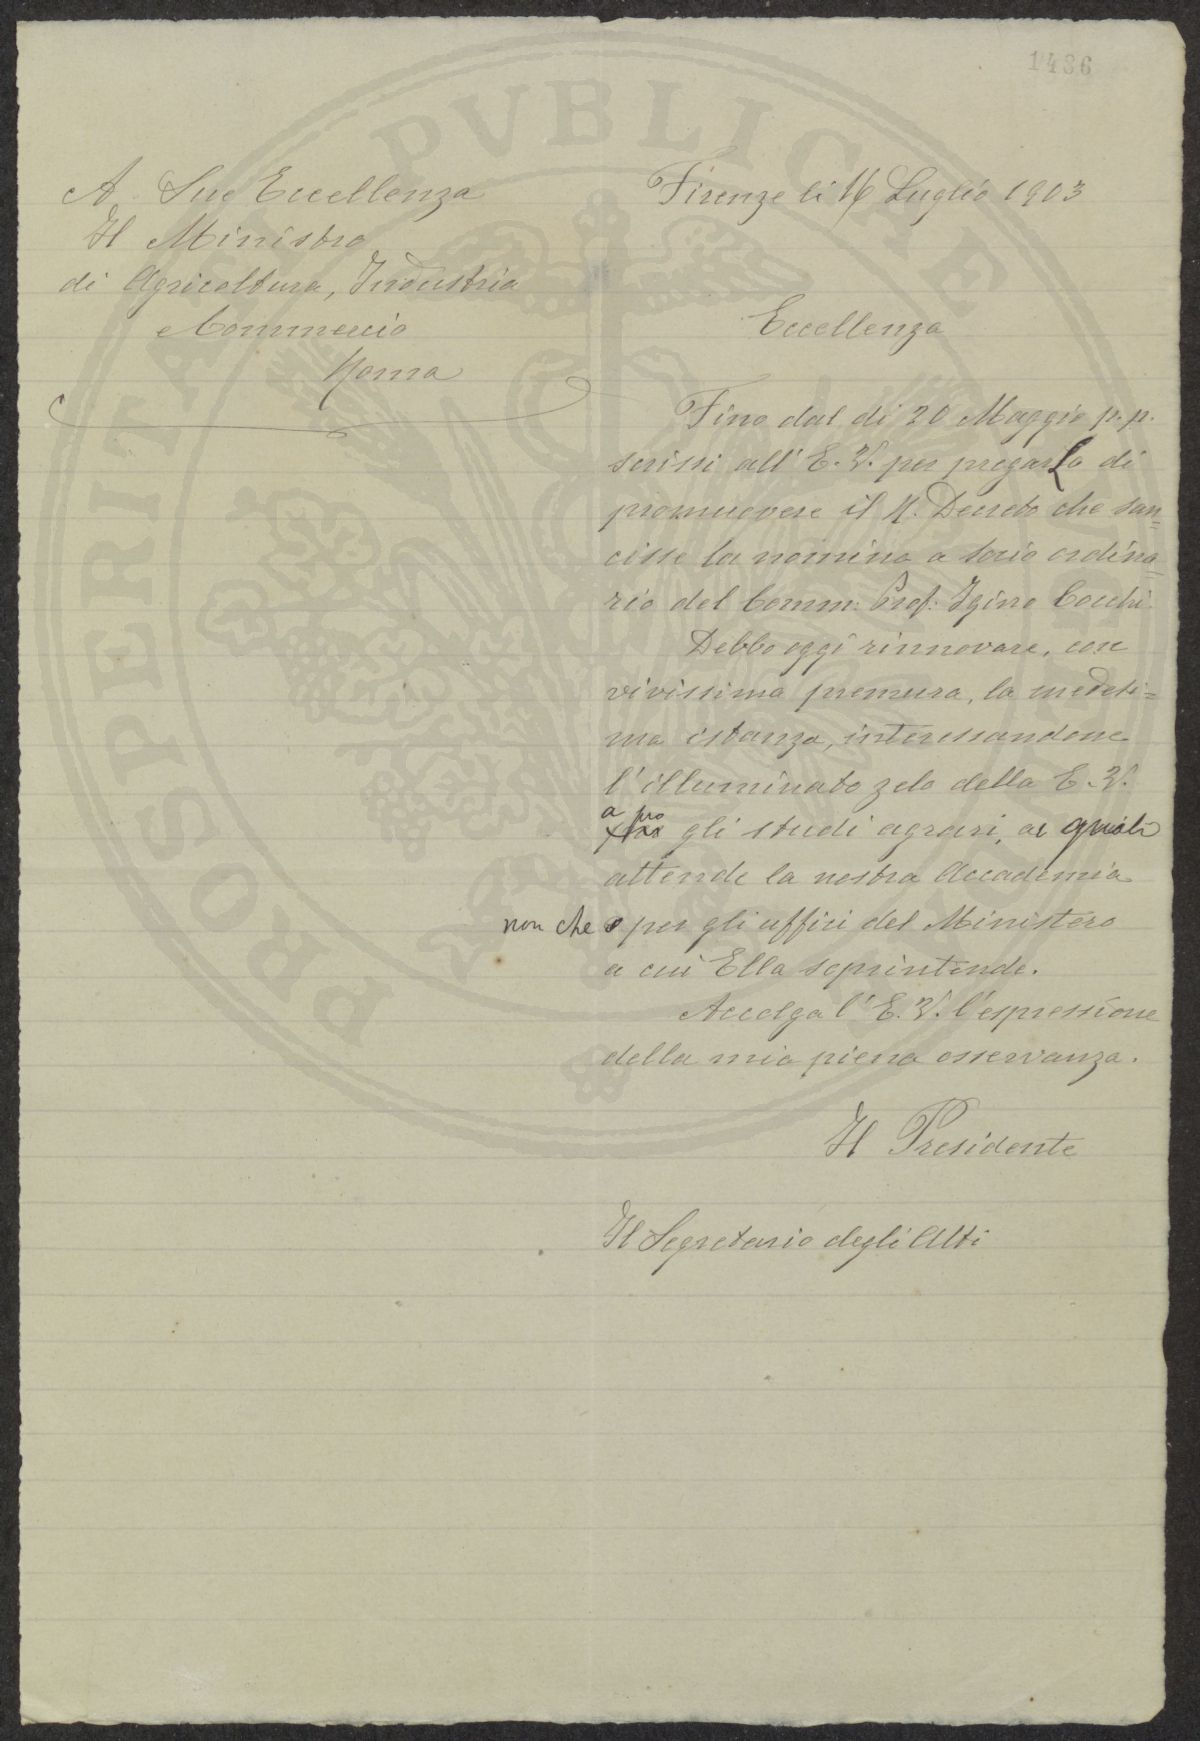 1486
A Sue Eccellenza
Il Ministro
di Agricoltura, Industria
e Commercio
Roma
Firenze li 16 Luglio 1903
Eccellenza
Fino dal di 20 Maggio p. p.
scrissi all' E. V. per pregarLa di
promuovere il R. Decreto che san=
cisse la nomina a socio ordina=
rio del Comm: Prof: Igino Cocchi.
Debbo oggi rinnovare, con
vivissima premura, la medesi=
ma istanza, interessandone
l'illuminato zelo della E. V.
a pro
gli studi agrari, ai quali
attende la nostra Accademia
non che per gli uffici del Ministero
a cui Ella soprintende.
Accolga l' E. V. l'espressione
della mia piena osservanza.
Il Presidente
Il Segretario degli Atti
PROSPERITATI PVBLICAE